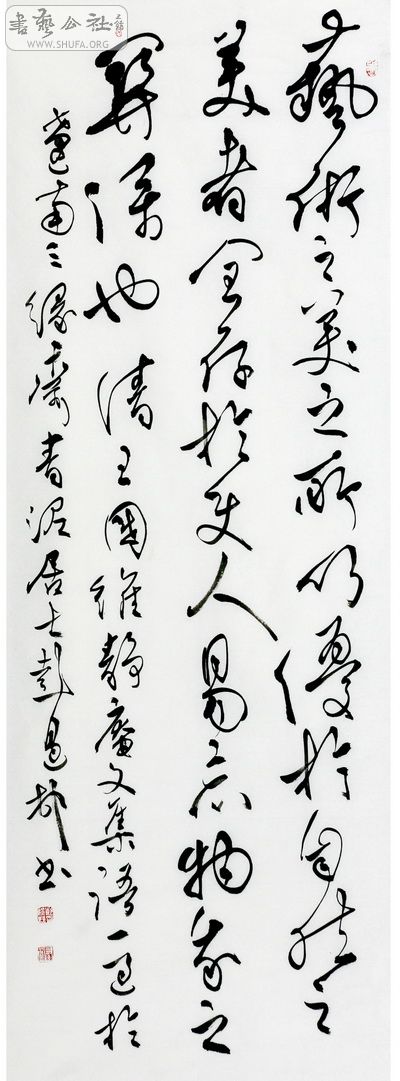 書藝公社
WWW.SHUFA.ORG
藝術之美之所以優於自然之
美者全存於使人易忘物我之
關係也 清王國維靜庵文集語一過於
三緣齋青泥居士彭
書